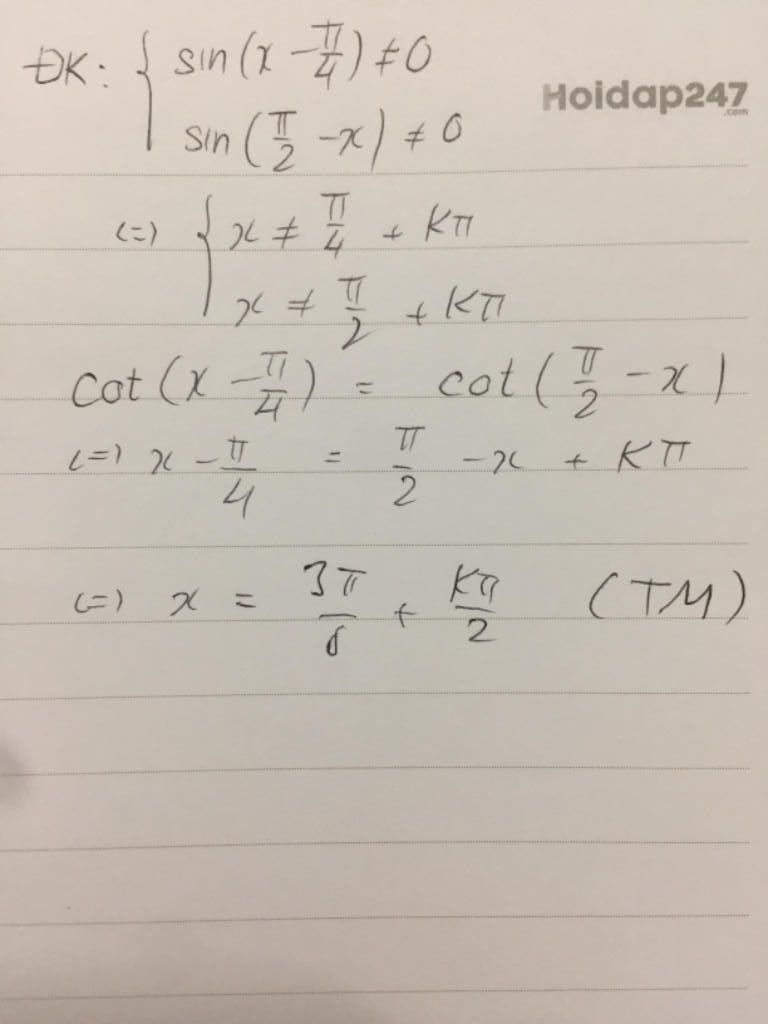 ĐK: { sin(x - π/4) ≠ 0
sin(π/2 - x) ≠ 0
Hoidap247
.com
(=) { x ≠ π/4 + kπ
x ≠ π/2 + kπ
cot(x - π/4) = cot(π/2 - x)
(=) x - π/4 = π/2 - x + kπ
(=) x = 3π/8 + kπ/2 (TM)